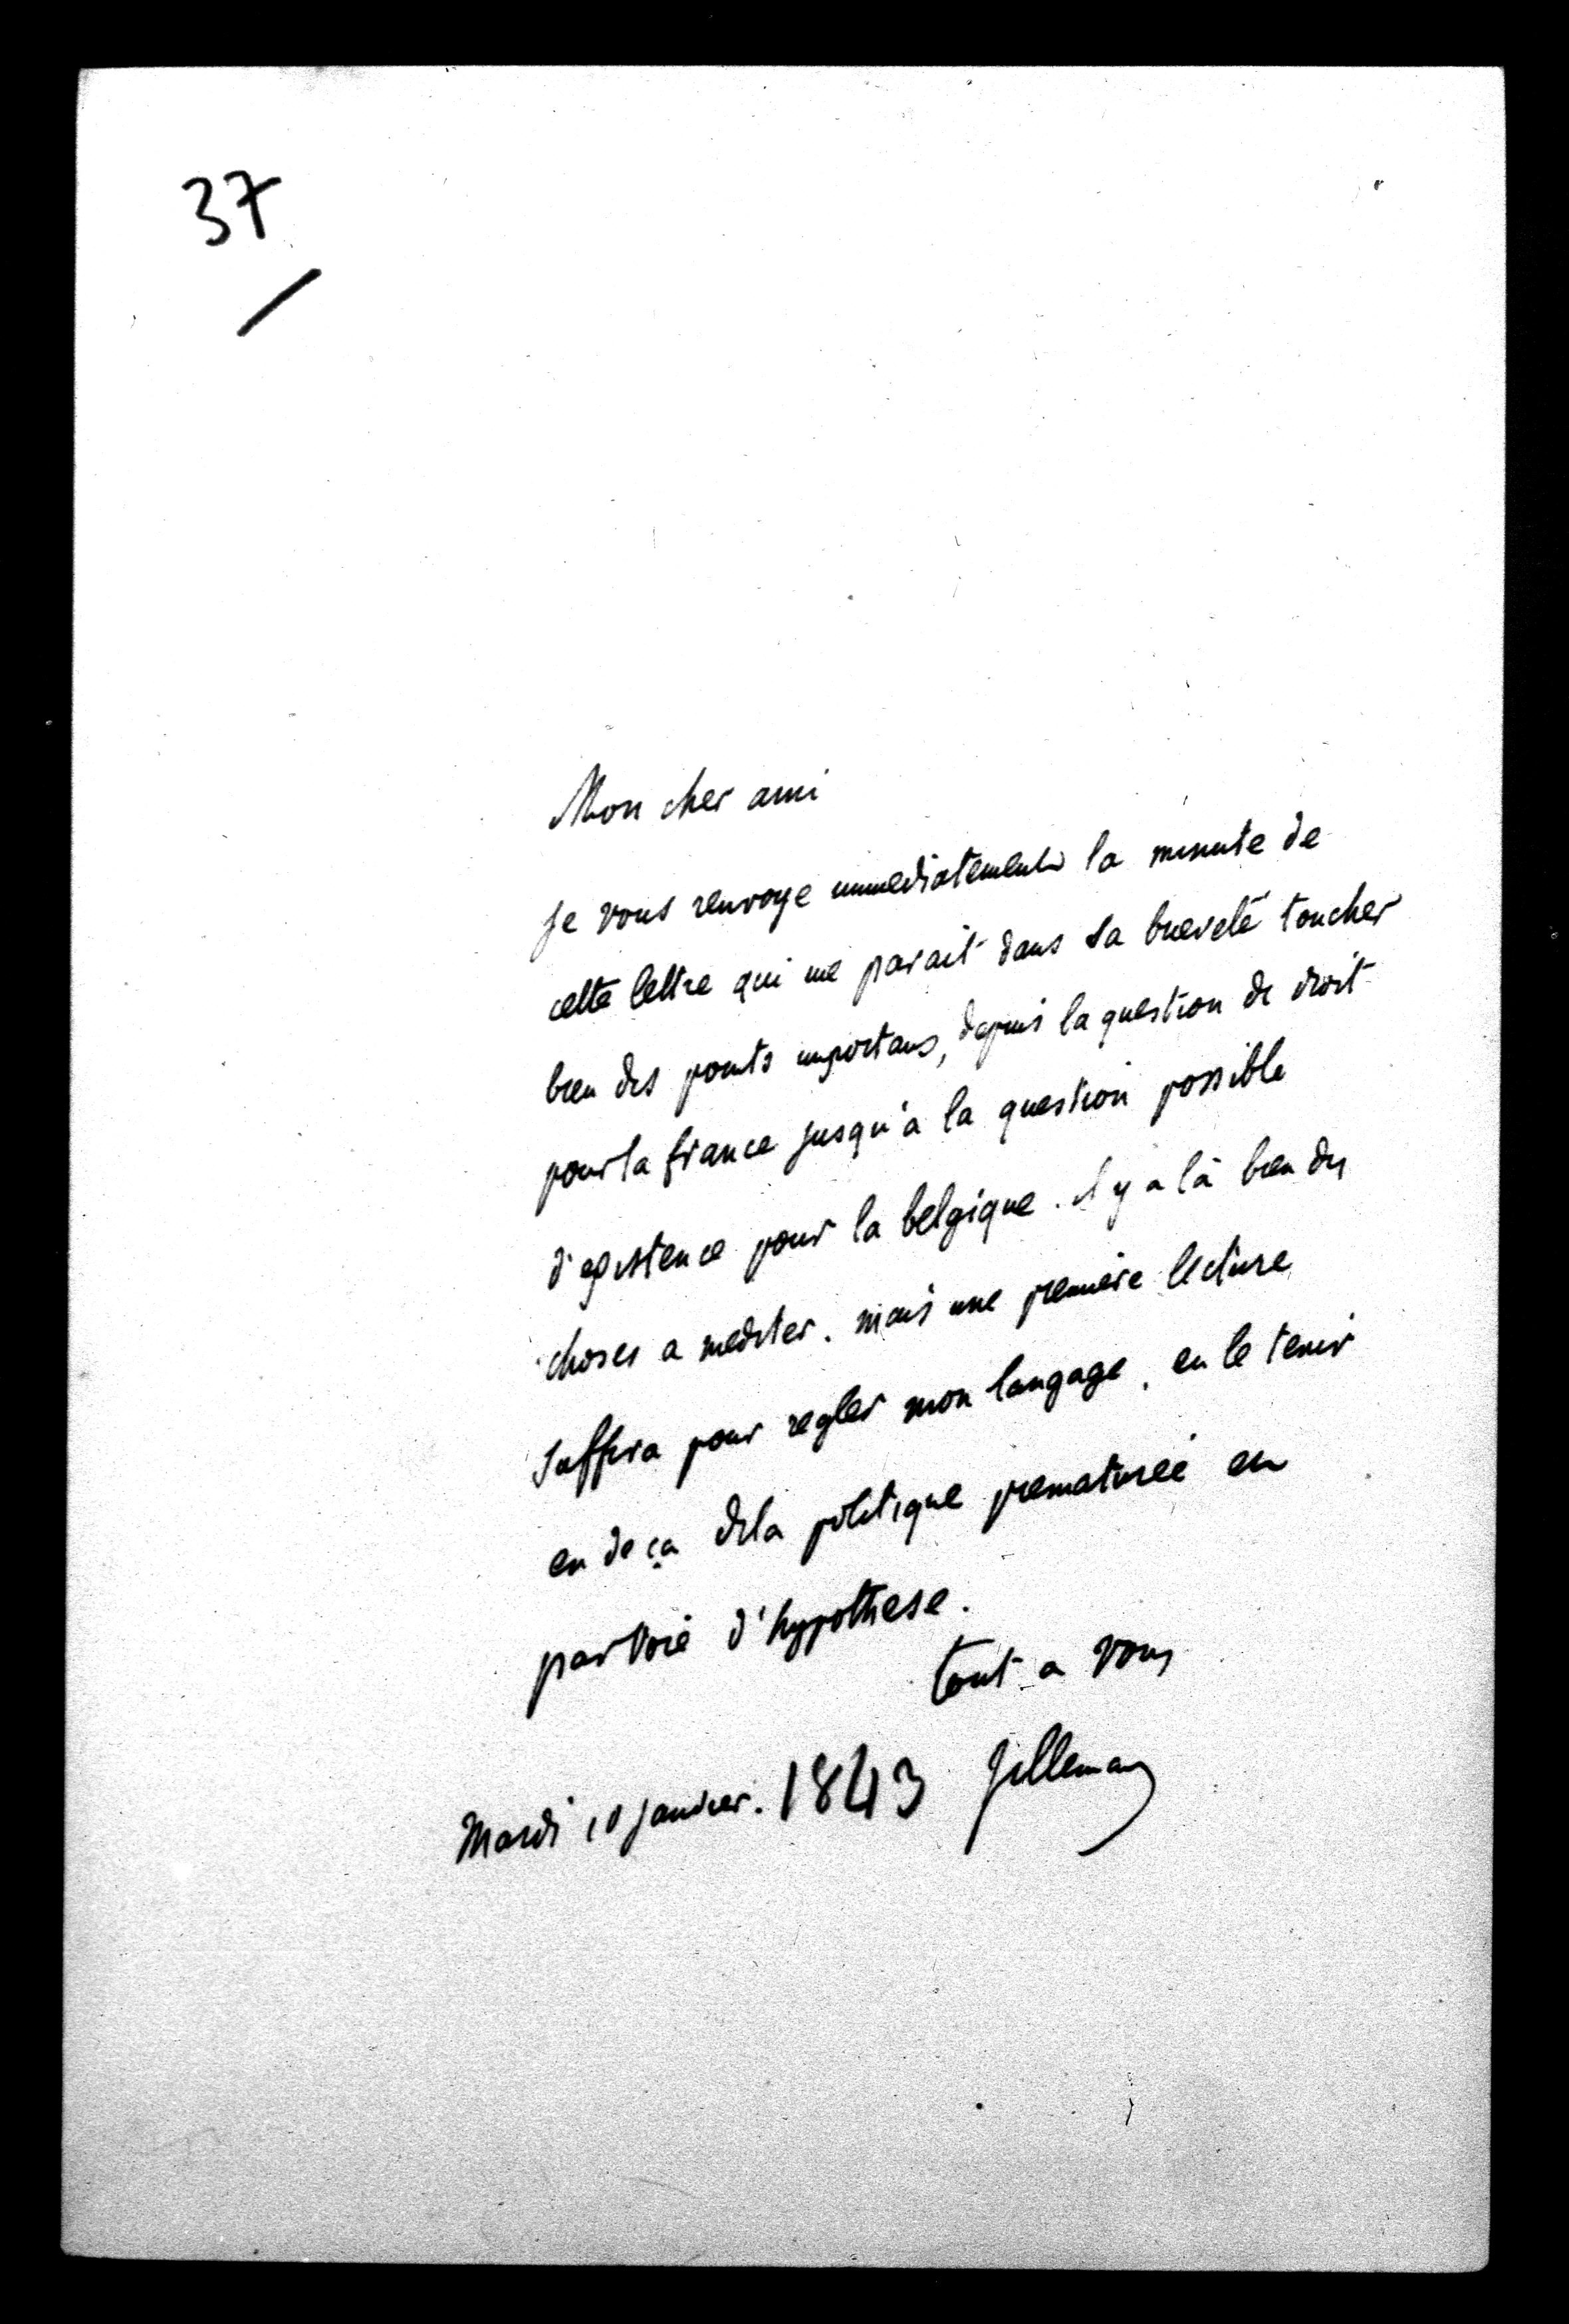 37
Mon cher ami
je vous renvoye immediatement la minute de
cette lettre qui me parait dans sa brieveté toucher
bien des points importans, depuis la question de droit
pour la france jusqu'a la question possible
d'existence pour la belgique. il y a là bien des
choses a mediter. mais une premiere lecture
suffira pour regler mon langage, en le tenir
en deça dela politique prematurée en
par voie d'hypothese.
tout a vous
Mardi 10 janvier. 1843 Villemain